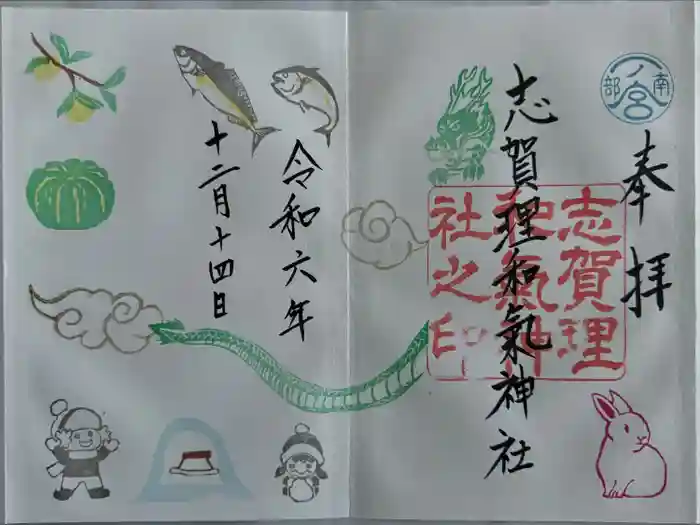 南部
一ノ宮
奉拝
志賀理和氣神社
志賀理
和氣神
社之印
令和六年
十二月十四日